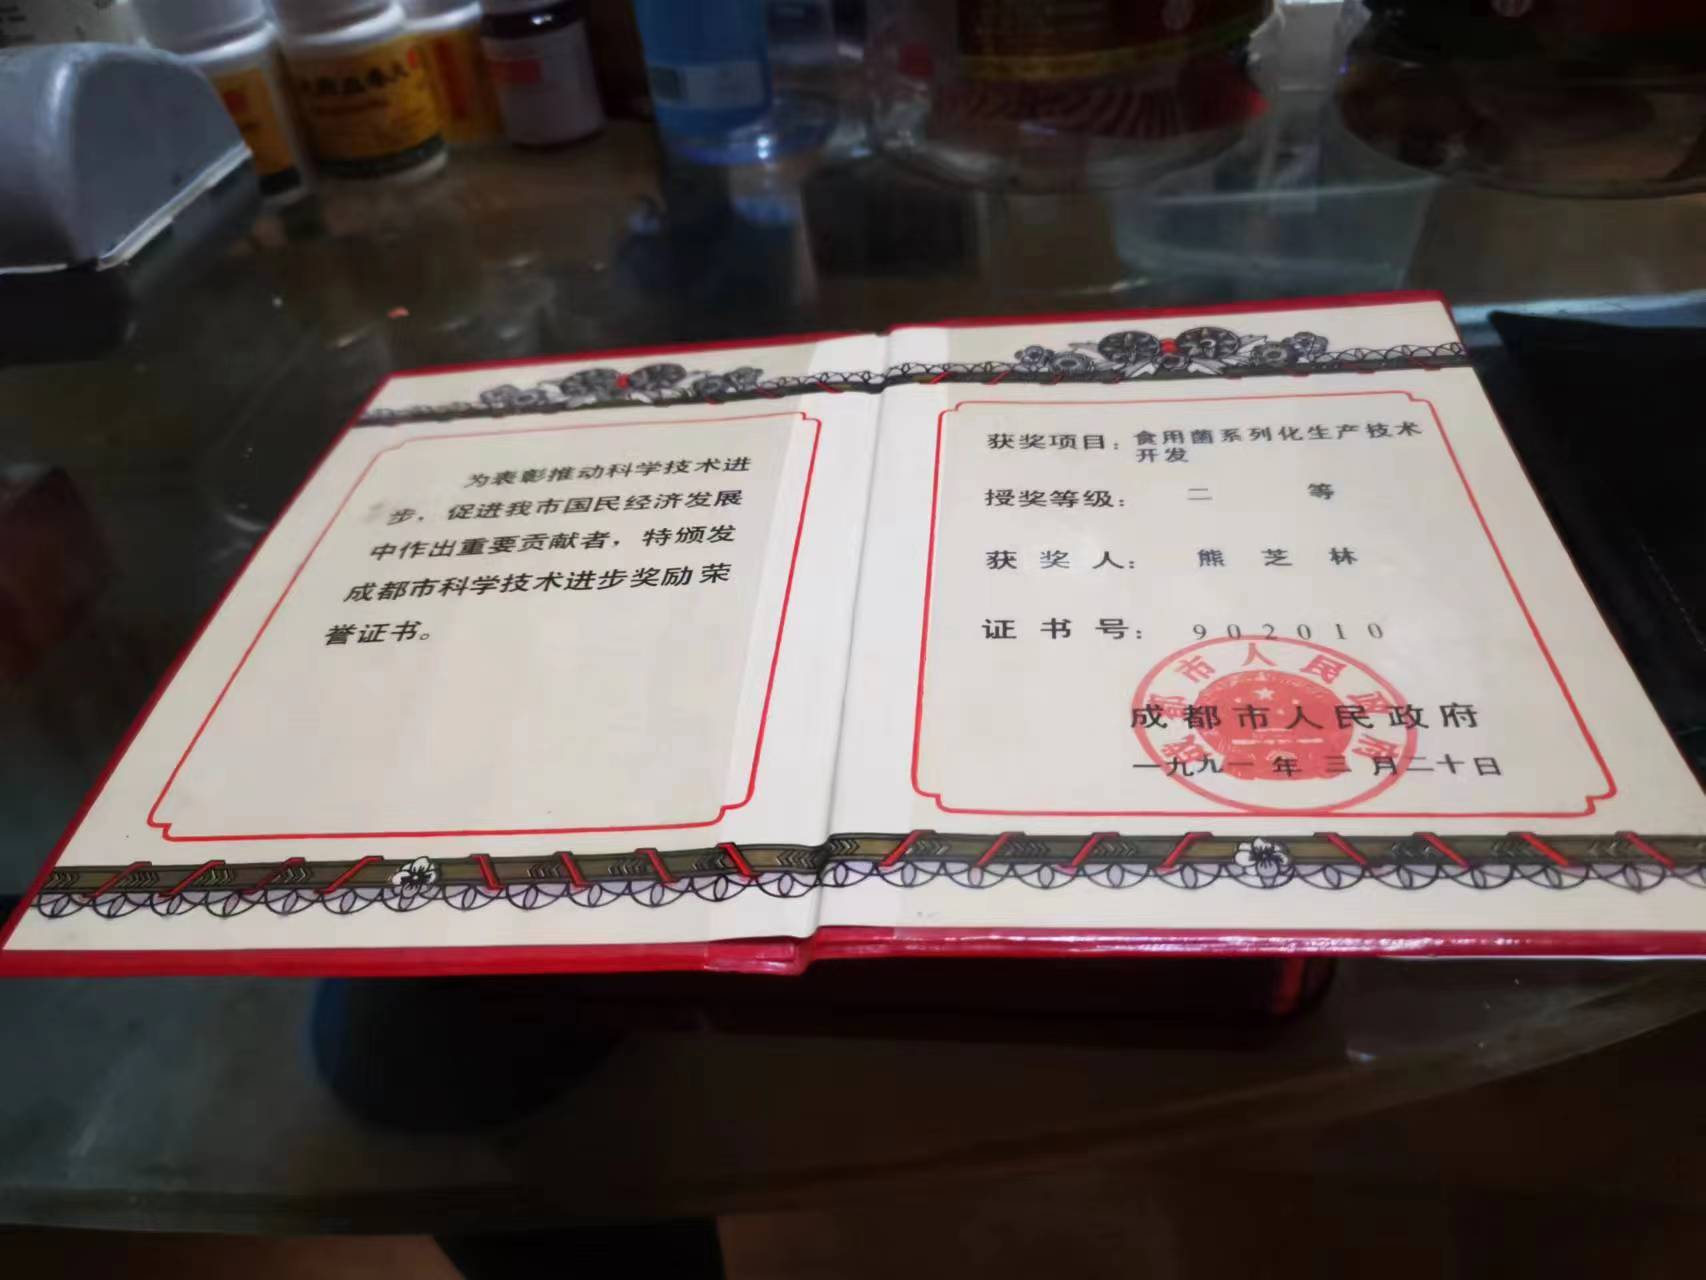 为表彰推动科学技术进
步，促进我市国民经济发展
中作出重要贡献者，特颁发
成都市科学技术进步奖励荣
誉证书。
获奖项目：食用菌系列化生产技术
开发
授奖等级： 二 等
获奖人： 熊芝林
证书号： 902010
成都市人民政府
一九九一年三月二十日
成都市人民政府